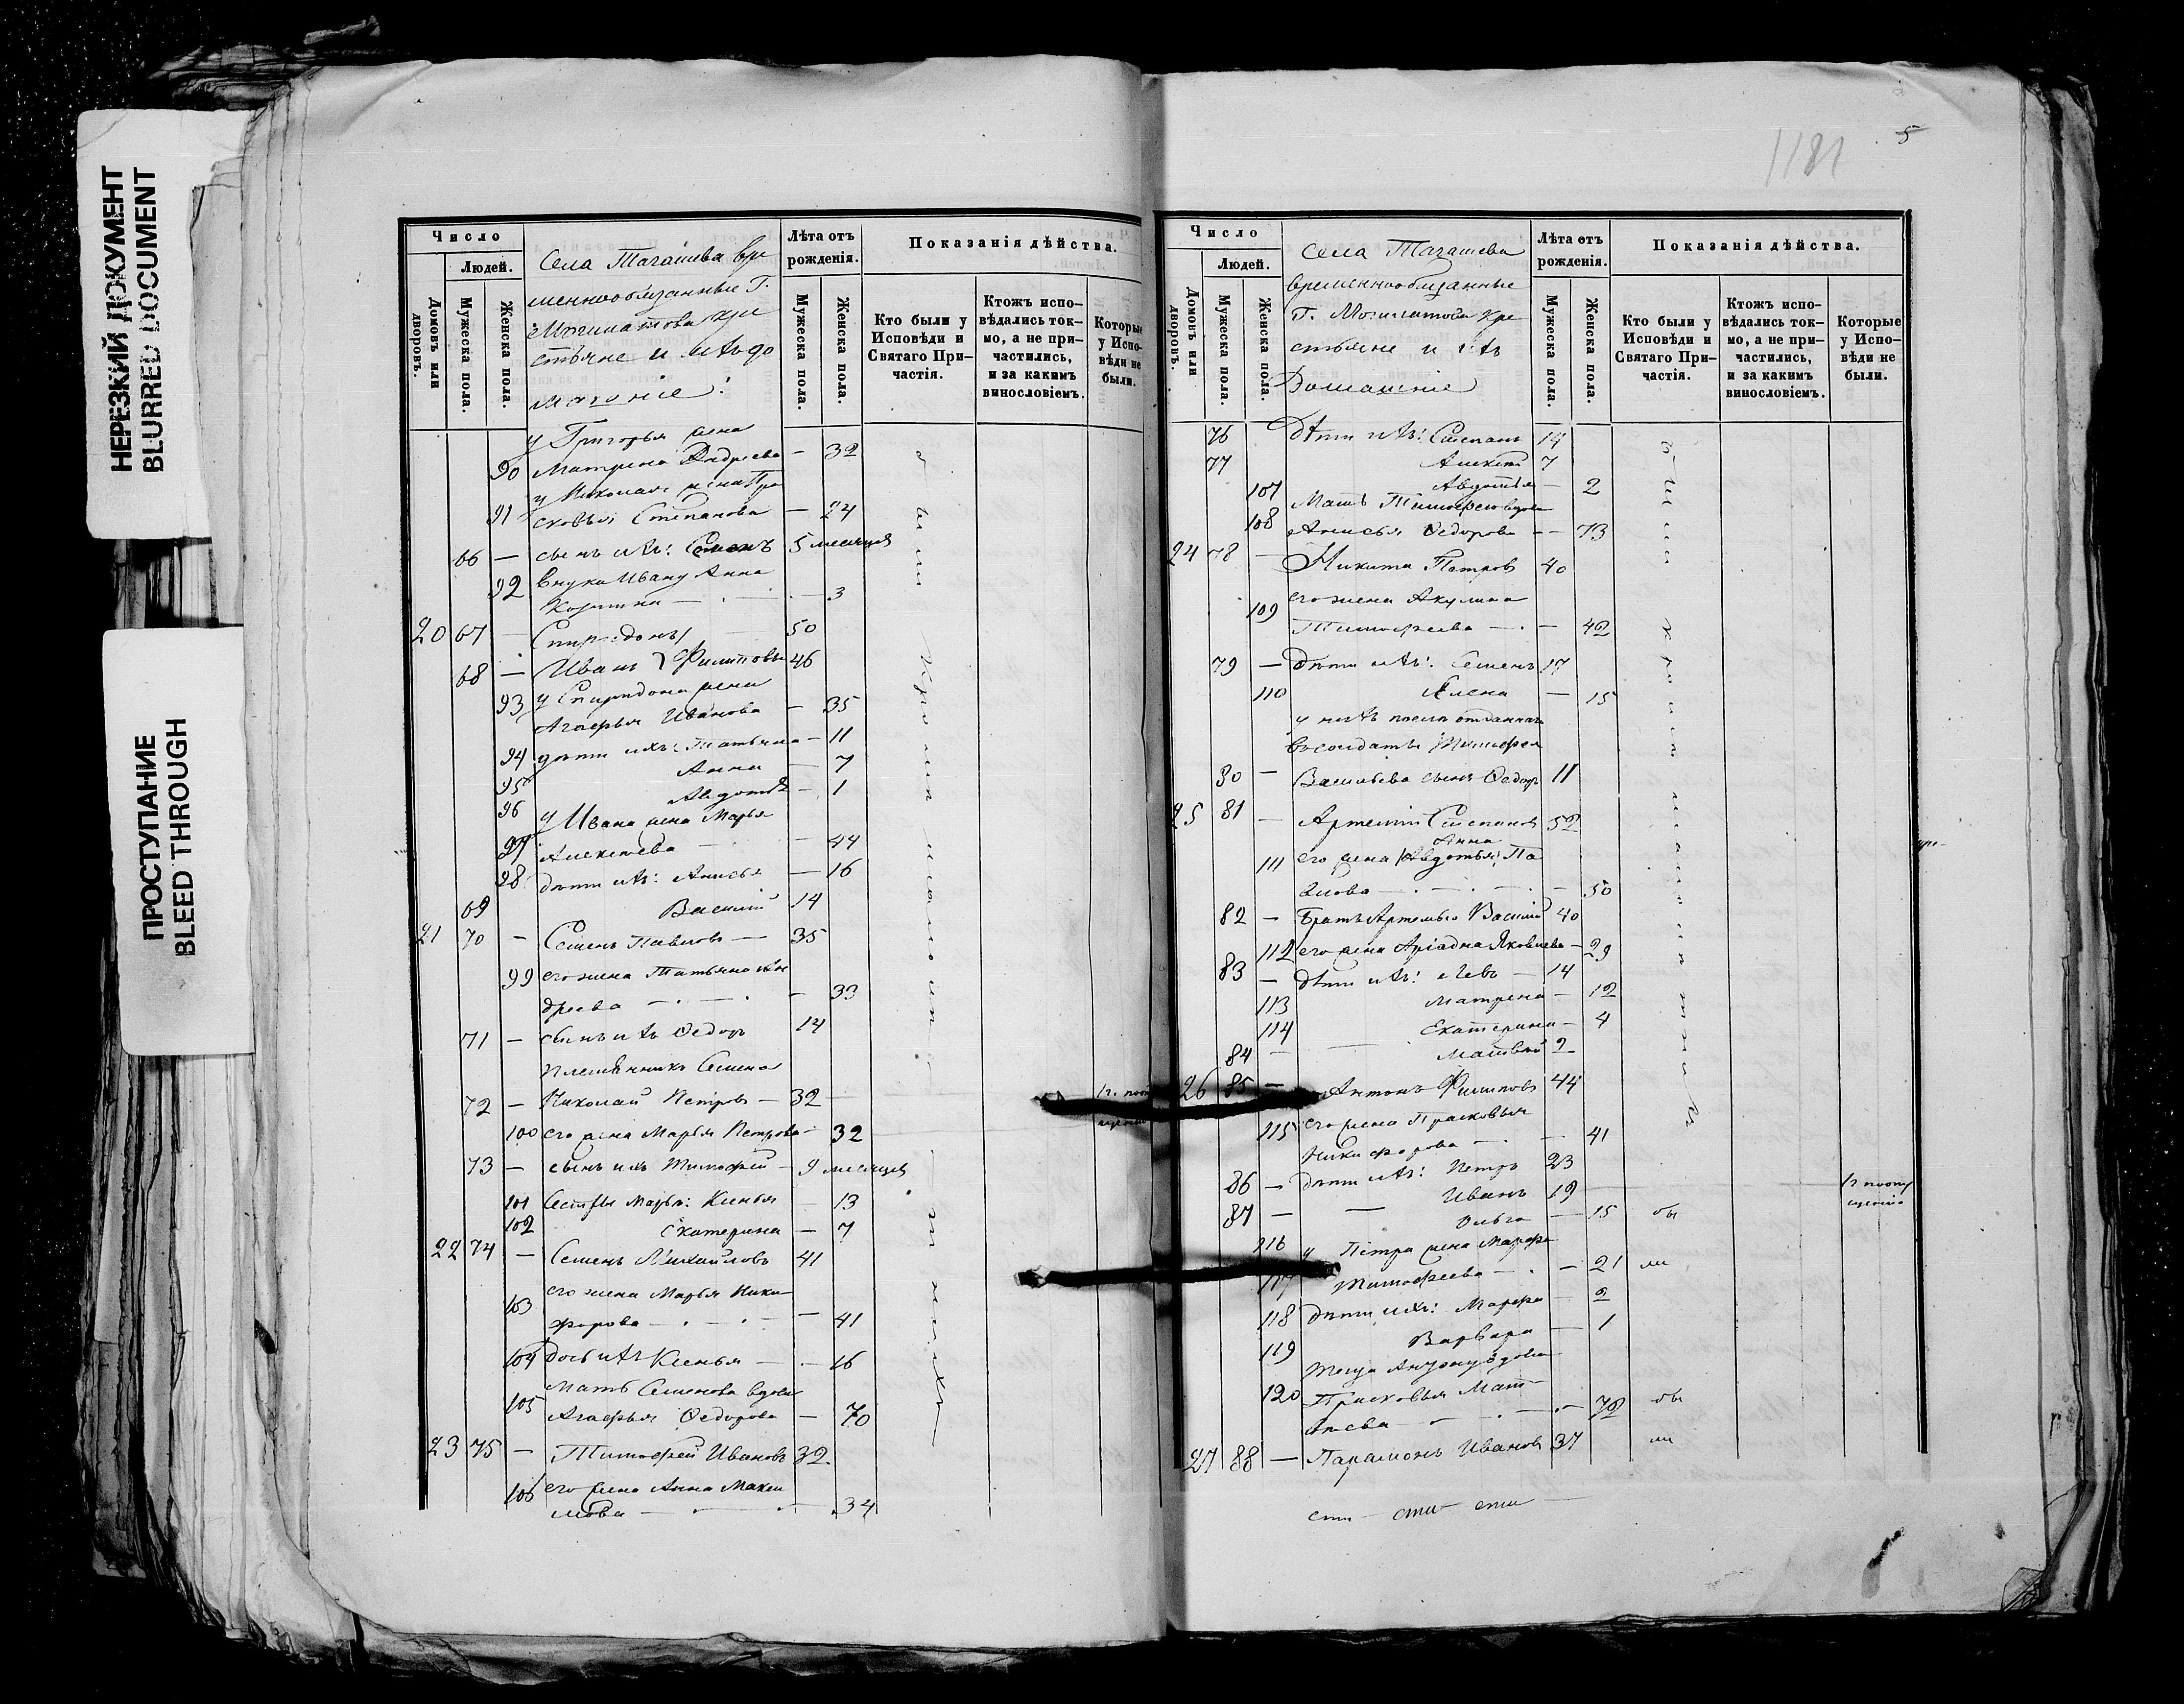 НЕРЕЗКИЙ ДОКУМЕНТ
BLURRED DOCUMENT
ПРОСТУПАНИЕ
BLEED THROUGH
Число
Людей.
Домовъ или дворовъ.
Мужеска пола.
Женска пола.
Села Тагашева вре
меннообязанные Г.
кре
стьяне и ихъ до
машніе:
Лѣта отъ рожденія.
Мужеска пола.
Женска пола.
Показанія дѣйства.
Кто были у Исповѣди и Святаго Причастія.
Ктожъ испо-
вѣдались ток-
мо, а не при-
частились,
и за какимъ
винословіемъ.
Которые
у Испо-
вѣди не
были.
у Григорья жена
90 Матрена Андреева — 32
у Николая жена Пра
91 сковья Степанова — 24
66 — сынъ ихъ: Семенъ 5 месяцев
92 внука Ивану Анна
— 3
20 67 — Спиридонъ 50
68 — Иванъ } Филиповы 46
93 у Спиридона жена
Агафья Иванова — 35
94 дети ихъ: Татьяна — 11
95 Анна — 7
96 Авдотья — 1
у Ивана жена Марья
97 Алексеева — 44
98 дети ихъ: Анисья — 16
69 Василий 14
21 70 — Семенъ Павловъ — 35
99 его жена Татьяна Ан
дреева — 33
71 — сынъ ихъ Федоръ 14
племянникъ Семена
72 — Николай Петровъ — 32
100 его жена Марья Петрова — 32
73 — сынъ ихъ Тимофей — 9 месяцев
101 Сестры Марьи: Ксенья — 13
102 Екатерина — 7
22 74 — Семенъ Михайловъ 41
его жена Марья Ники
103 форова — 41
104 дочь ихъ Ксенья — 16
мать Семенова вдова
105 Агафья Федорова — 70
23 75 — Тимофей Ивановъ 32
106 его жена Анна Макси
мова — 34
1181
5
Число
Людей.
Домовъ или дворовъ.
Мужеска пола.
Женска пола.
Села Тагашева
временнообязанные
Г. кре
стьяне и ихъ
Домашніе
Лѣта отъ рожденія.
Мужеска пола.
Женска пола.
Показанія дѣйства.
Кто были у Исповѣди и Святаго Причастія.
Ктожъ испо-
вѣдались ток-
мо, а не при-
частились,
и за какимъ
винословіемъ.
Которые
у Испо-
вѣди не
были.
76 Дѣти ихъ: Степанъ 14
77 Алексей 7
107 Авдотья — 2
Мать Тимофеева вдова
108 Анисья Федорова — 73
24 78 — Никита Петровъ 40
его жена Акулина
109 Тимофеева — 42
79 — Дети ихъ: Семенъ 17
110 Елена — 15
у нихъ после отданнаго
въ солдаты Тимофея
80 — Васильева сынъ Федоръ 11
25 81 — Артемий Степановъ 52
Анна
111 его жена (Авдотья) Па
влова — 50
82 — Братъ Артемью Василий 40
112 его жена Аріадна Яковлева — 29
83 — дети ихъ: Левъ — 14
113 Матрена — 12
114 Екатерина — 4
84 — Матвей 2
26 85 — Антонъ Филиповъ 44
115 его жена Прасковья
Никифорова — 41
86 — дети ихъ: Петръ 23
87 — Иванъ 19
116 Ольга — 15 бы
у Петра жена Марфа
117 Тимофеева — 21 ли
118 дети ихъ: Марфа — 2
119 Варвара — 1
Теща Антону вдова
120 Прасковья Мат
веева — 72 бы
27 88 — Парамонъ Ивановъ 37 ли